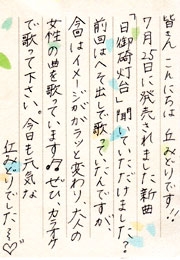 皆さん こんにちは 丘みどりです!!
7月25日に発売されました新曲
「日御碕灯台」聞いていただけました?
前回はへそ出しで歌っていたんですが、
今回はイメージがガラッと変わり、大人の
女性の曲を歌っています♫ぜひ、カラオケ
で歌って下さい。今日も元気な
丘みどりでした〜♡